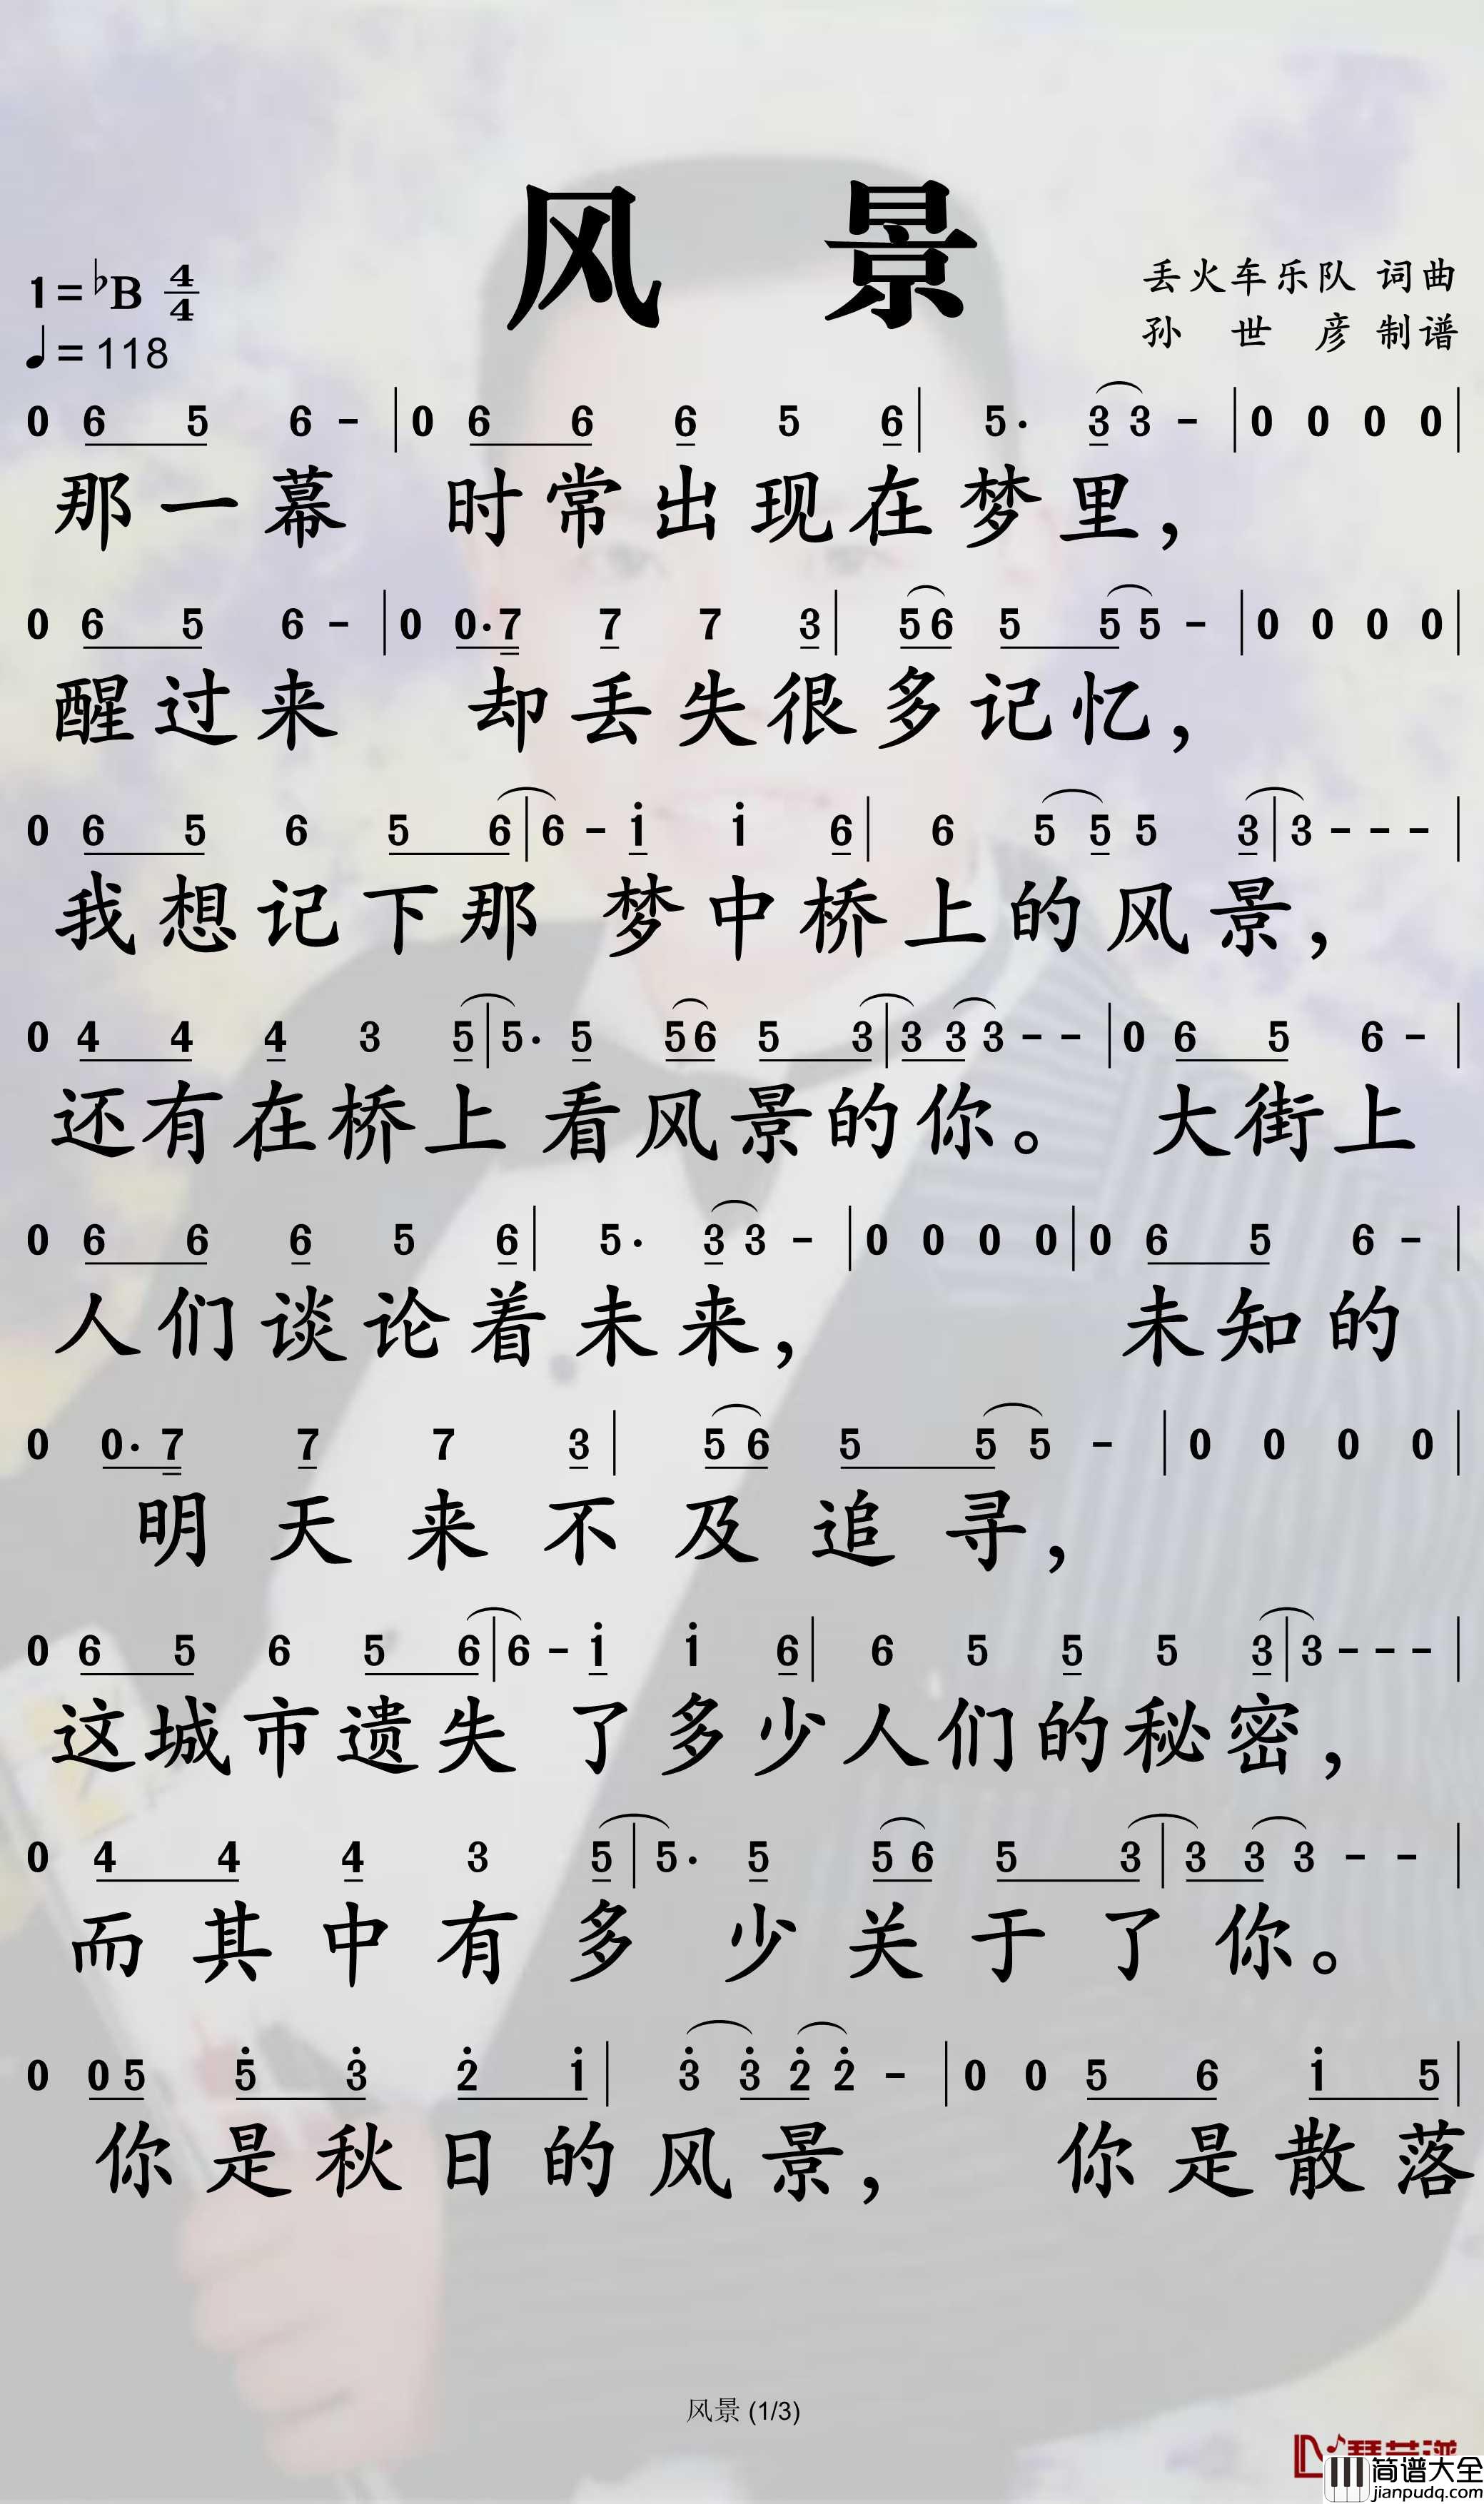 风 景
1=♭B 4/4
♩=118
丢火车乐队 词曲
孙 世 彦 制谱
0 6 5 6 - | 0 6 6 6 5 6 | 5· 3 3 - | 0 0 0 0 |
那一幕 时常出现在梦里，
0 6 5 6 - | 0 0·7 7 7 3 | 5 6 5 5 5 - | 0 0 0 0 |
醒过来 却丢失很多记忆，
0 6 5 6 5 6 | 6 - i i 6 | 6 5 5 5 3 | 3 - - - |
我想记下那 梦中桥上的风景，
0 4 4 4 3 5 | 5· 5 5 6 5 3 | 3 3 3 - - | 0 6 5 6 - |
还有在桥上 看风景的你。 大街上
0 6 6 6 5 6 | 5· 3 3 - | 0 0 0 0 | 0 6 5 6 - |
人们谈论着未来， 未知的
0 0·7 7 7 3 | 5 6 5 5 5 - | 0 0 0 0 |
明天来不及追寻，
0 6 5 6 5 6 | 6 - i i 6 | 6 5 5 5 3 | 3 - - - |
这城市遗失 了多少人们的秘密，
0 4 4 4 3 5 | 5· 5 5 6 5 3 | 3 3 3 - - |
而其中有多 少关于了你。
0 0 5 5̇ 3̇ 2̇ i | 3̇ 3̇ 2̇ 2̇ - | 0 0 5 6 i 5 |
你是秋日的风景， 你是散落
风景 (1/3)
简谱大全
jianpudq.com